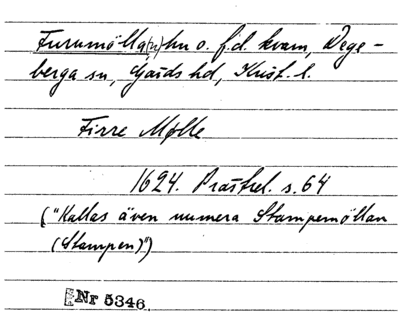 Furumölla(n) hu o. f.d. kvarn, Dege-
berga sn, Gärds hd, Krist. l.
Firre Mølle
1624. Prästrel. s. 64
("Kallas även numera Stampemöllan
(Stampen)")
Nr 5346